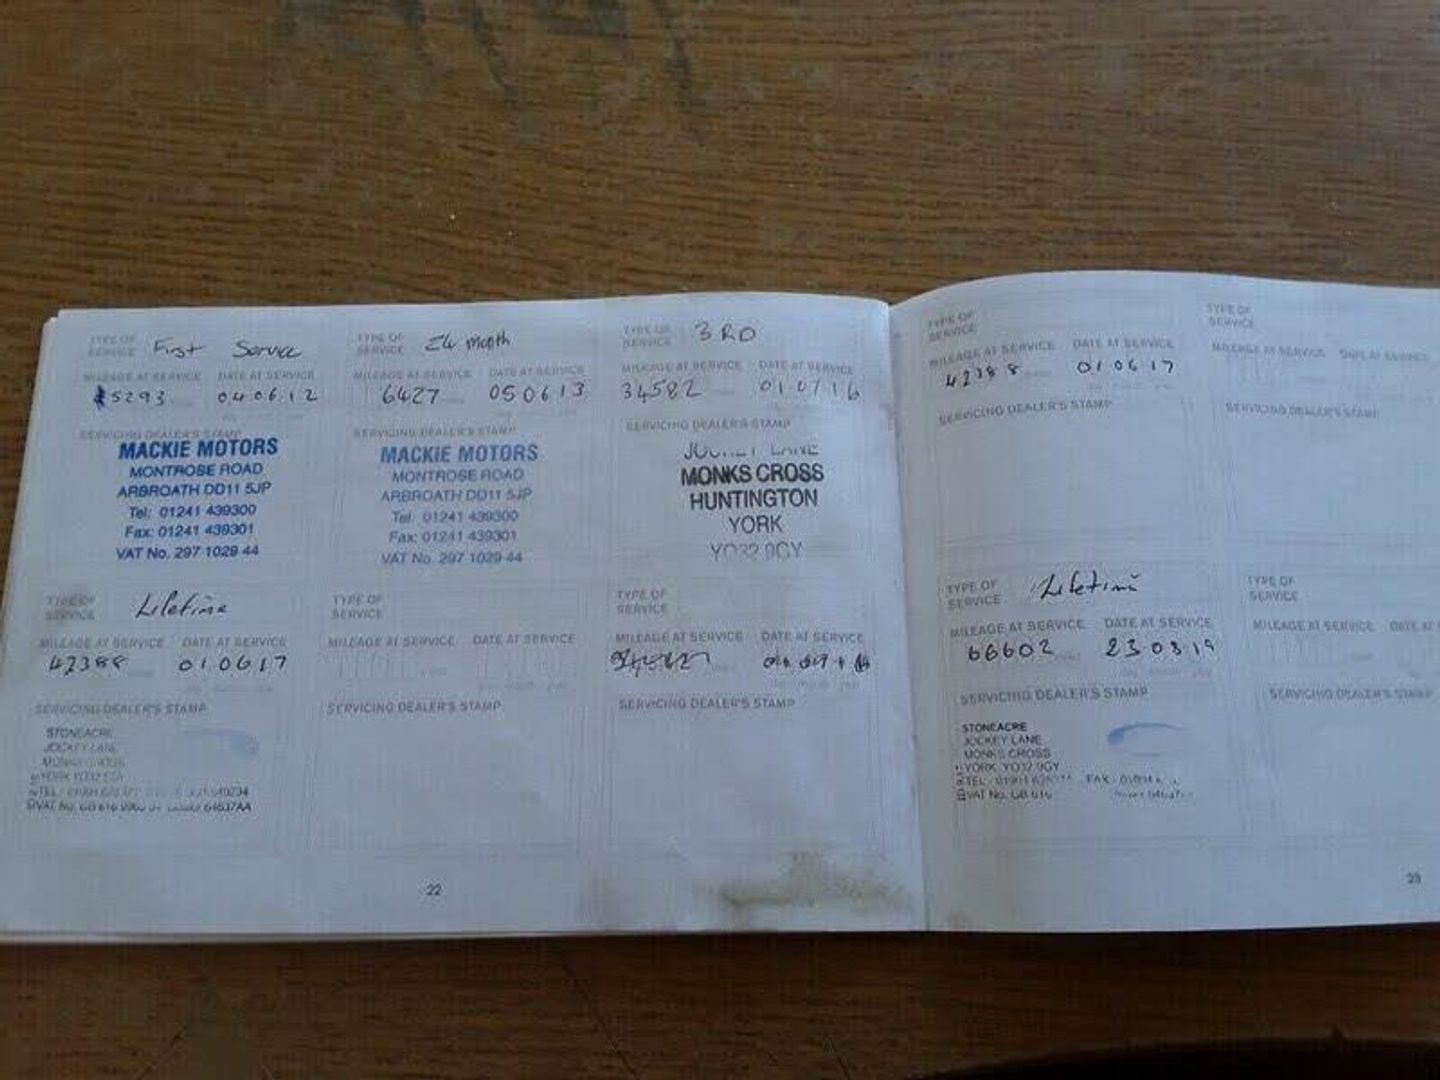 TYPE OF SERVICE First Service
MILEAGE AT SERVICE DATE AT SERVICE
5293 040612
SERVICING DEALER'S STAMP
MACKIE MOTORS
MONTROSE ROAD
ARBROATH DD11 5JP
Tel: 01241 439300
Fax: 01241 439301
VAT No. 297 1029 44
TYPE OF SERVICE 24 month
MILEAGE AT SERVICE DATE AT SERVICE
6427 050613
SERVICING DEALER'S STAMP
MACKIE MOTORS
MONTROSE ROAD
ARBROATH DD11 5JP
Tel: 01241 439300
Fax: 01241 439301
VAT No. 297 1029 44
TYPE OF SERVICE 3RD
MILEAGE AT SERVICE DATE AT SERVICE
34582 010716
SERVICING DEALER'S STAMP
JOCKEY LANE
MONKS CROSS
HUNTINGTON
YORK
YO32 9GY
TYPE OF SERVICE Lifetime
MILEAGE AT SERVICE DATE AT SERVICE
42388 010617
SERVICING DEALER'S STAMP
STONEACRE
JOCKEY LANE
MONKS CROSS
YORK
VAT No. GB 616
TYPE OF SERVICE
MILEAGE AT SERVICE DATE AT SERVICE
SERVICING DEALER'S STAMP
TYPE OF SERVICE
MILEAGE AT SERVICE DATE AT SERVICE
SERVICING DEALER'S STAMP
22
TYPE OF SERVICE
MILEAGE AT SERVICE DATE AT SERVICE
42388 010617
SERVICING DEALER'S STAMP
TYPE OF SERVICE
MILEAGE AT SERVICE DATE AT SERVICE
SERVICING DEALER'S STAMP
TYPE OF SERVICE Lifetime
MILEAGE AT SERVICE DATE AT SERVICE
66602 230819
SERVICING DEALER'S STAMP
STONEACRE
JOCKEY LANE
MONKS CROSS
YORK YO32 9GY
TEL: FAX:
VAT No. GB 616
TYPE OF SERVICE
MILEAGE AT SERVICE DATE AT
SERVICING DEALER'S STAMP
23